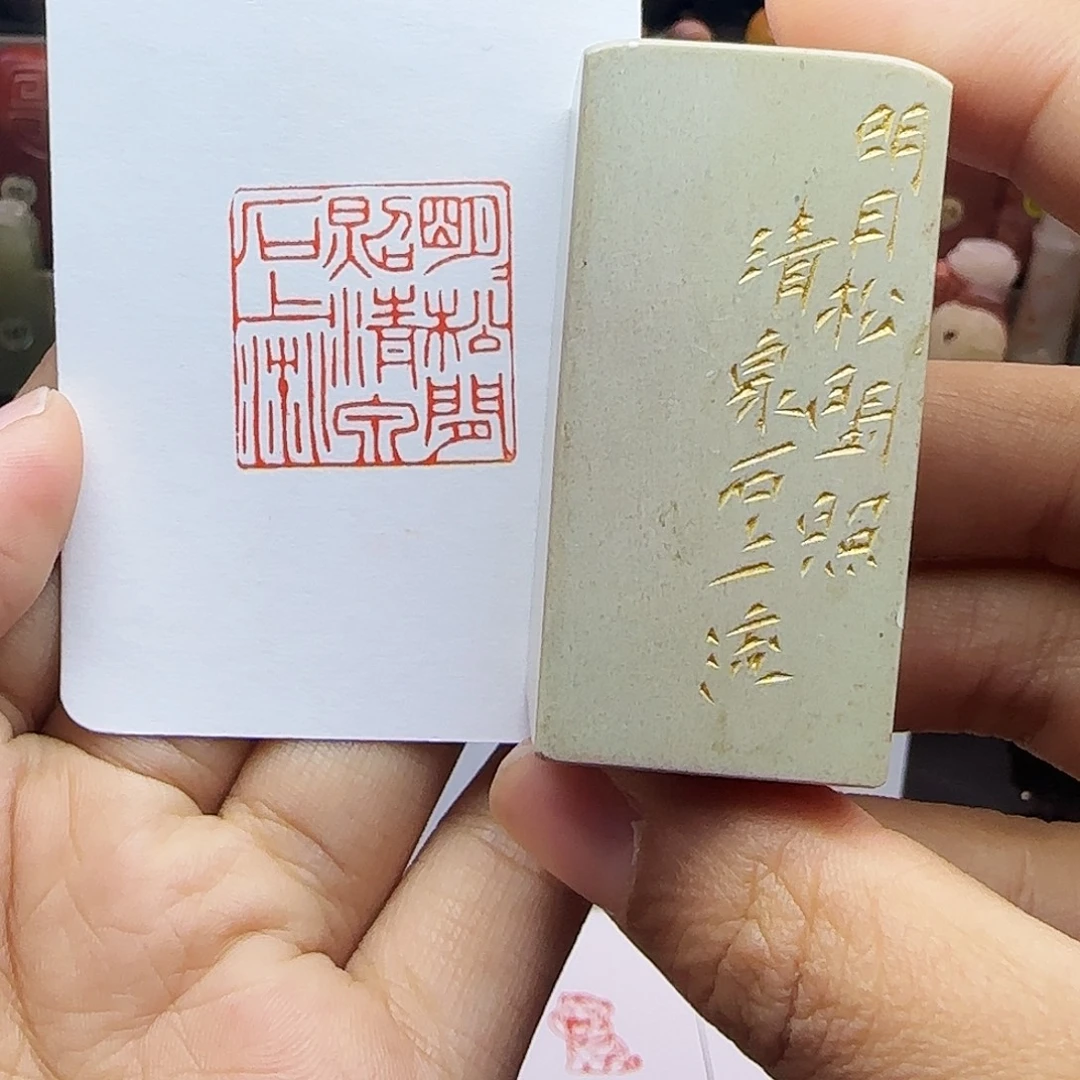 明〻松間
照清泉
石上流
明月松間照
清泉石上流